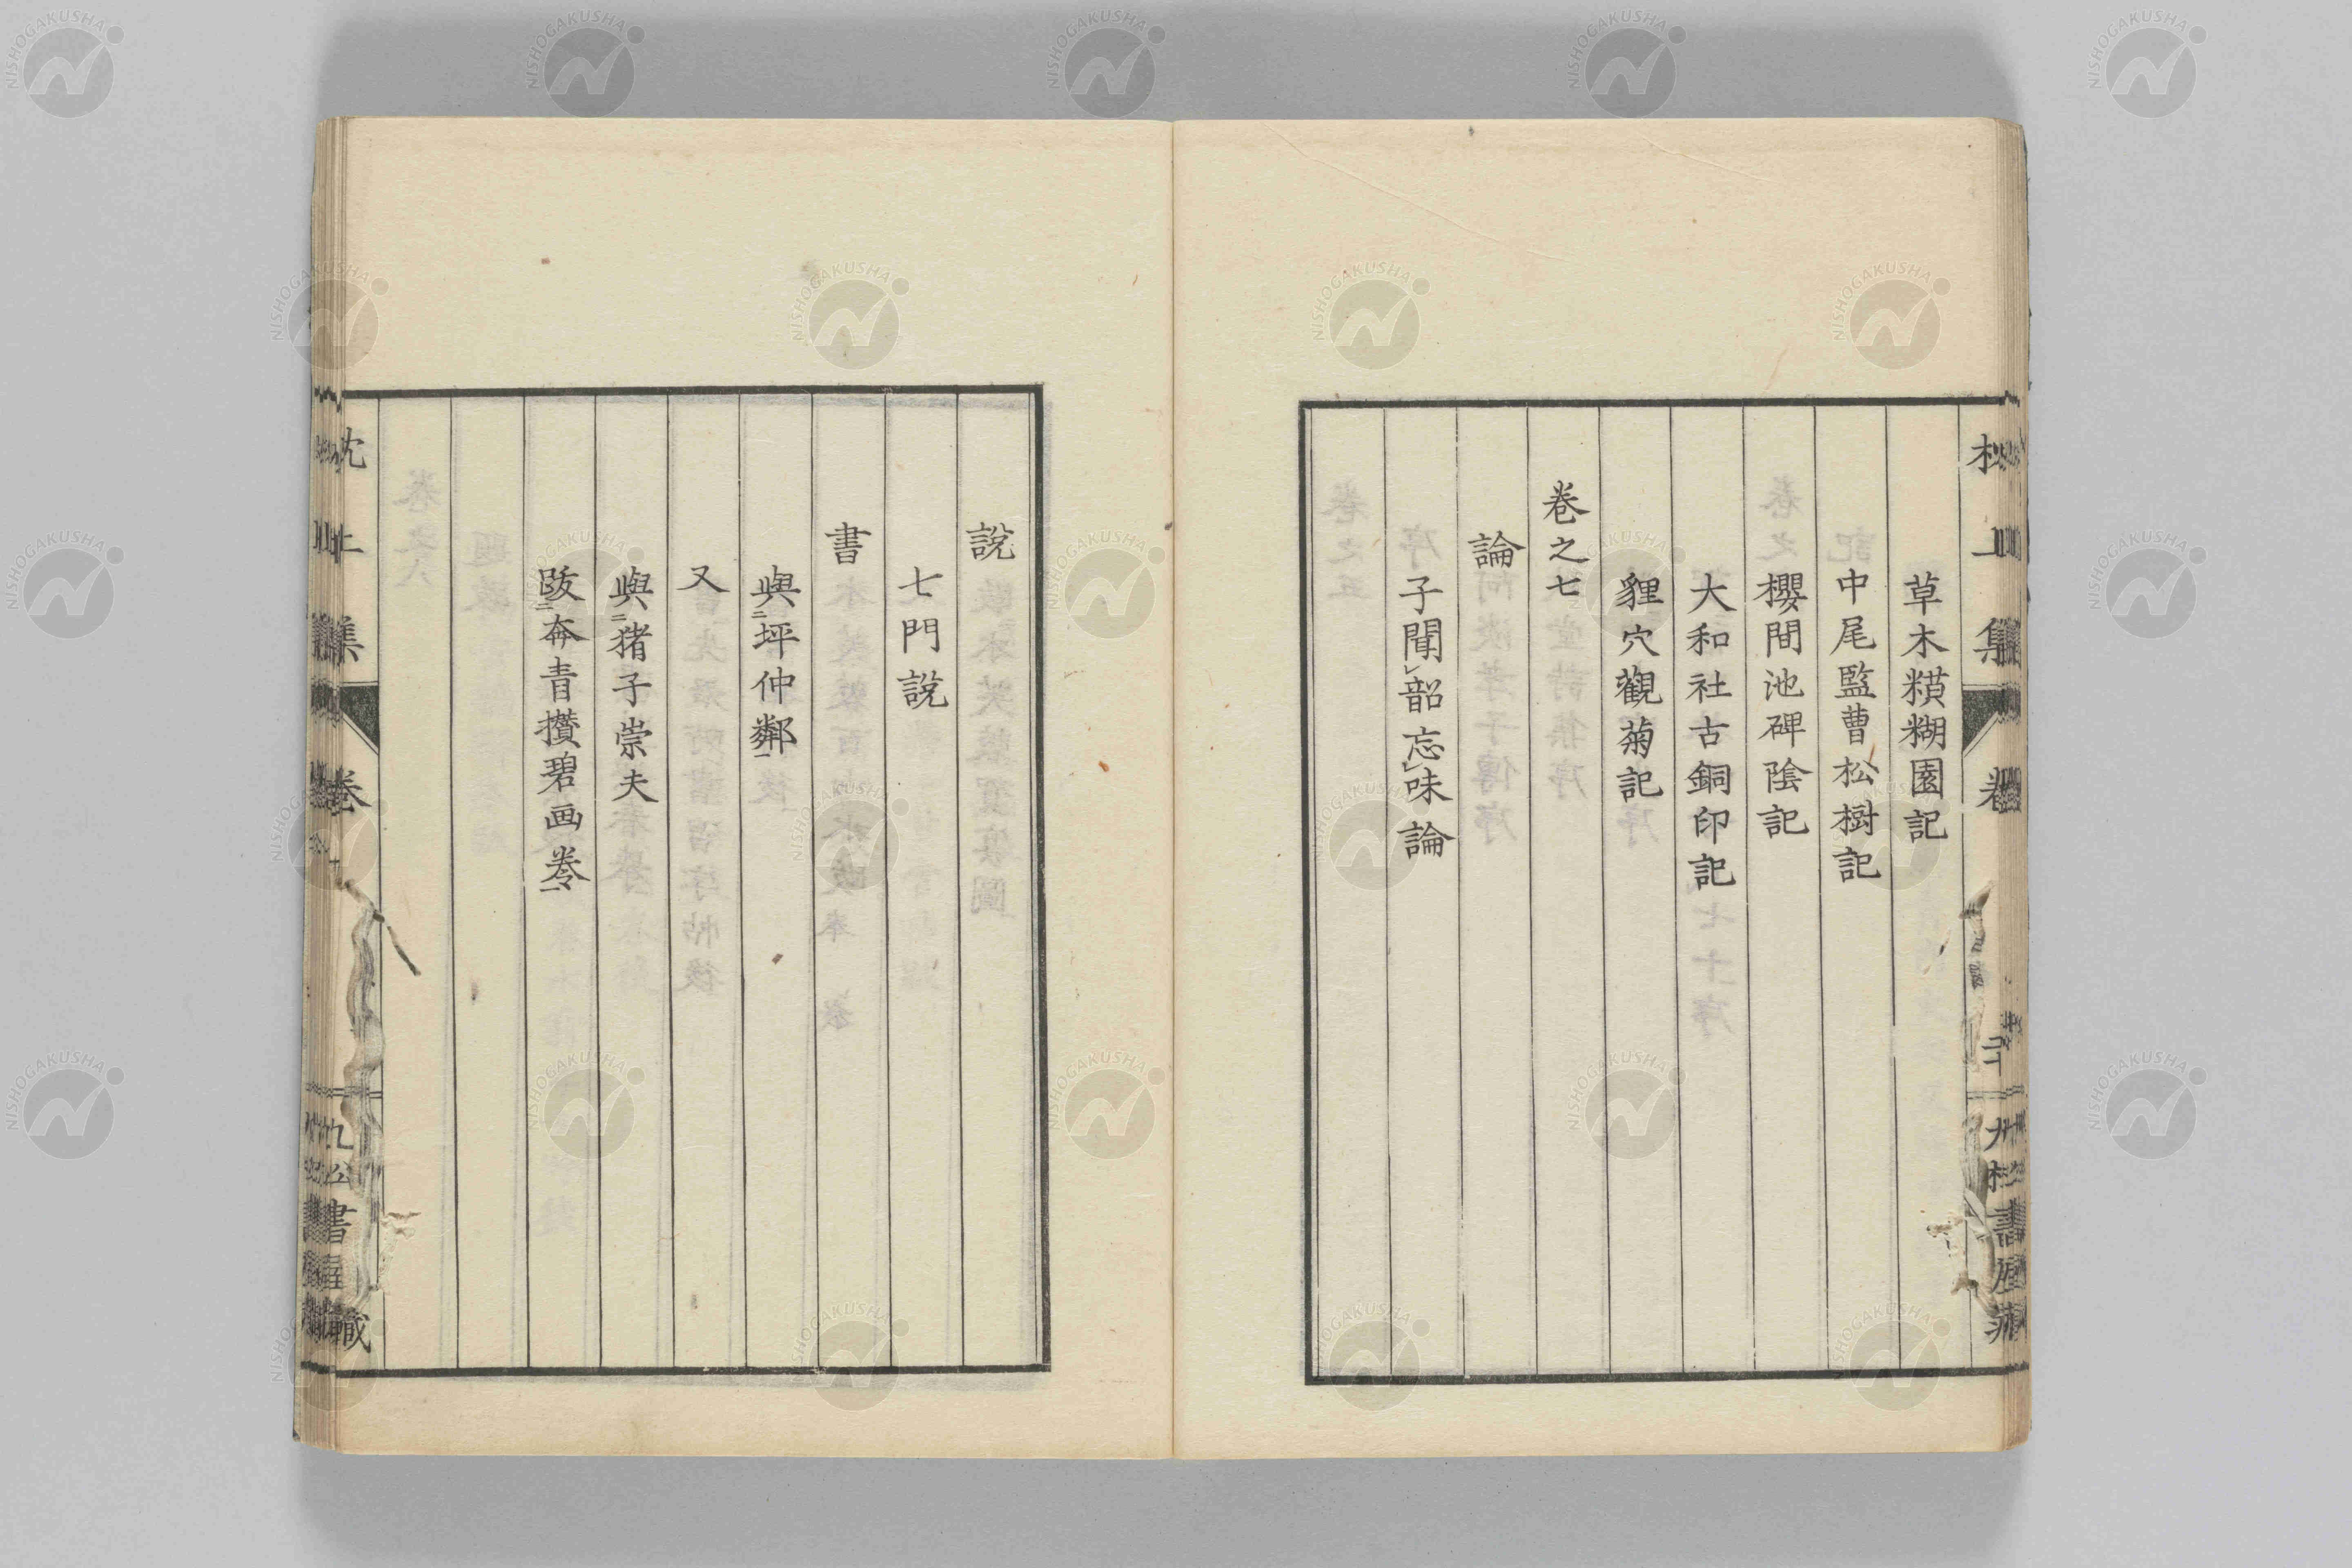 草木糢糊園記
中尾監曹松樹記
櫻間池碑陰記
大和社古銅印記
貍穴觀菊記
卷之七
論
子聞レ韶忘レ味論
說
七門說
書
與二坪仲鄰一
又
與二猪子崇夫
跋二奔青攢碧画卷一
枕上集
卷
九松書屋藏
NISHOGAKUSHA